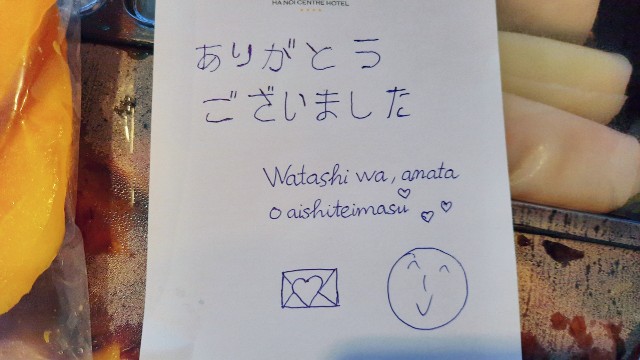 HANOI CENTRE HOTEL
ありがとう
ございました
Watashi wa, anata
o aishiteimasu